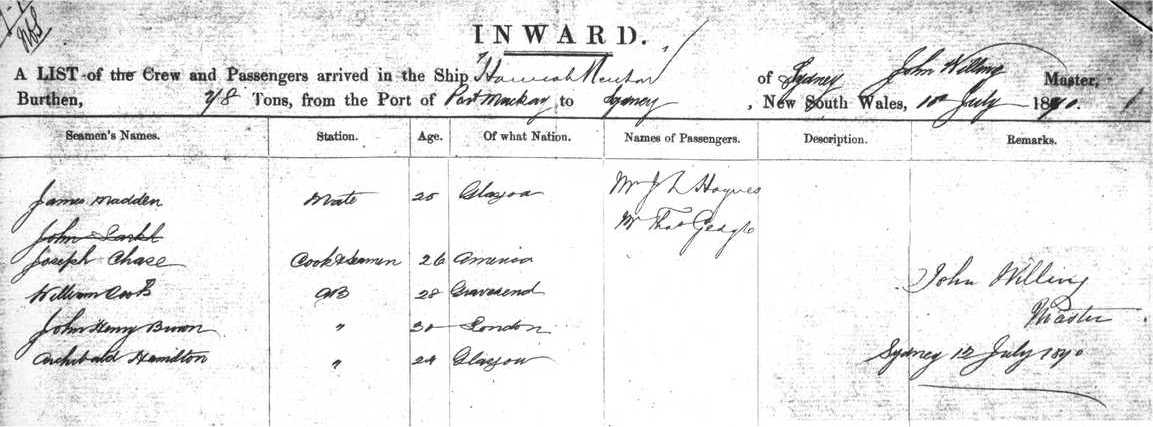 INWARD.
A LIST of the Crew and Passengers arrived in the Ship Hannah of Sydney John Willing Master,
Burthen, Tons, from the Port of Port Mackay to Sydney, New South Wales, July 18
Seamen's Names. Station. Age. Of what Nation. Names of Passengers. Description. Remarks.
Mr J L Haynes
James Madden Mate 25 Glasgow
Mr Thos
John
Joseph Chase Cook & Seaman 26 America
John Willing
William AB 28 Gravesend
Master
John Henry Brown " 30 London
Archibald Hamilton " 24 Glasgow
Sydney 12 July 18